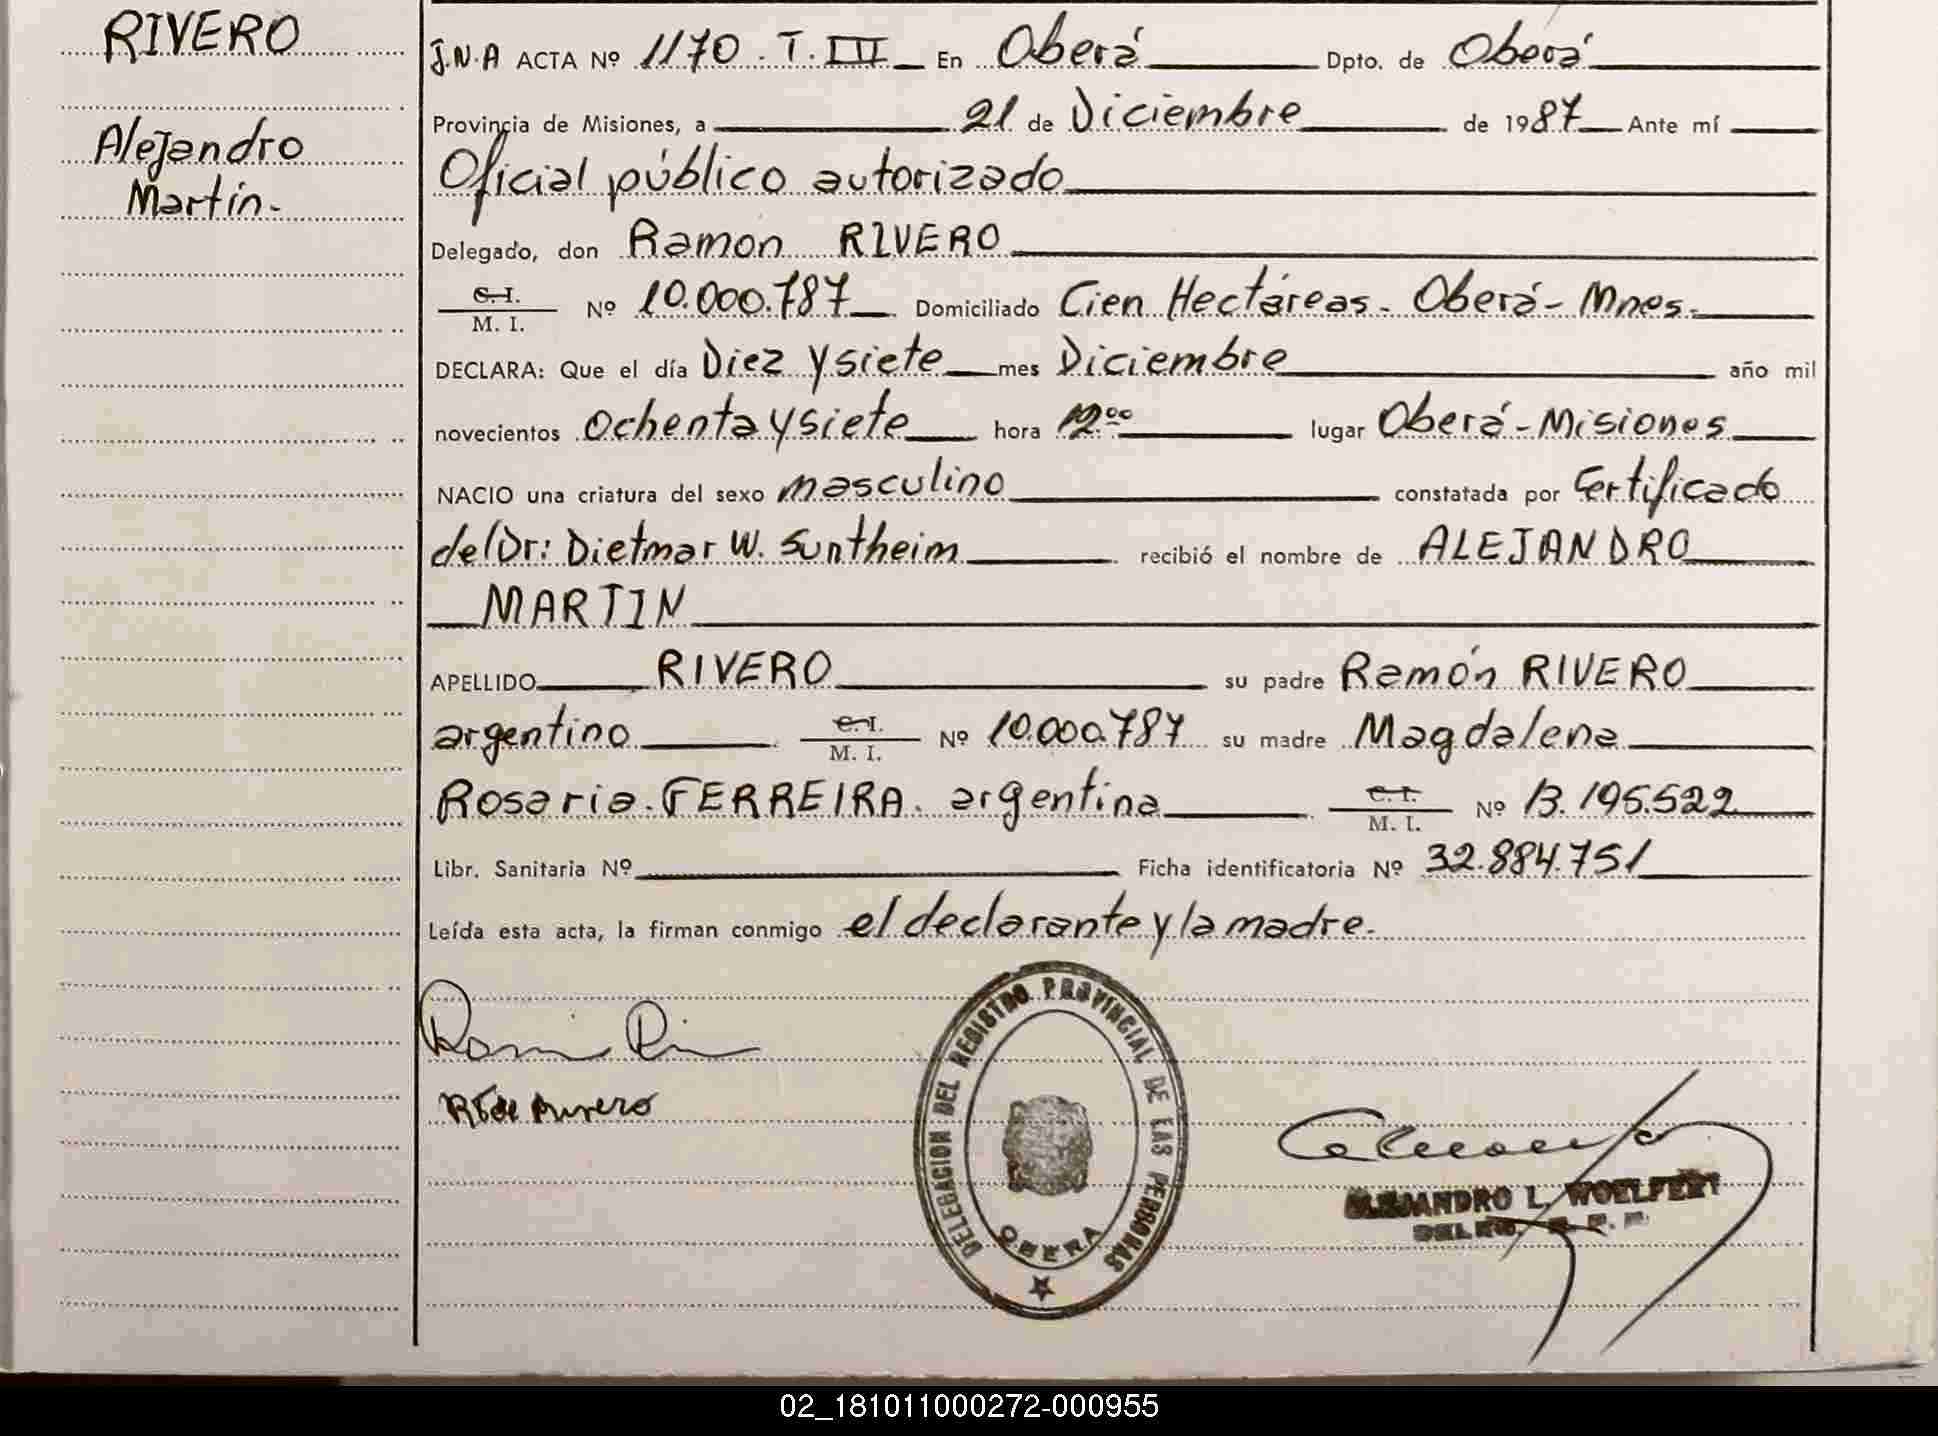 RIVERO
Alejandro
Martín.-
J.N.A ACTA Nº 1170 . T. III En Oberá Dpto. de Oberá
Provincia de Misiones, a 21 de Diciembre de 1987 Ante mí
Oficial público autorizado
Delegado, don Ramon RIVERO
C. I.
M. I. Nº 10.000.787 Domiciliado Cien Hectáreas - Oberá - Mnes.-
DECLARA: Que el día Diez y siete mes Diciembre año mil
novecientos Ochenta y siete hora 12.00 lugar Oberá - Misiones
NACIO una criatura del sexo masculino constatada por Certificado
del Dr: Dietmar W. Suntheim recibió el nombre de ALEJANDRO
MARTIN
APELLIDO RIVERO su padre Ramón RIVERO
argentino C. I.
M. I. Nº 10.000.787 su madre Magdalena
Rosaria. FERREIRA. argentina C. I.
M. I. Nº 13.195.522
Libr. Sanitaria Nº Ficha identificatoria Nº 32.884.751
Leída esta acta, la firman conmigo el declarante y la madre.-
DELEGACION DEL REGISTRO PROVINCIAL DE LAS PERSONAS
OBERA
de Rivero
ALEJANDRO L. WOELFERT
02_181011000272-000955